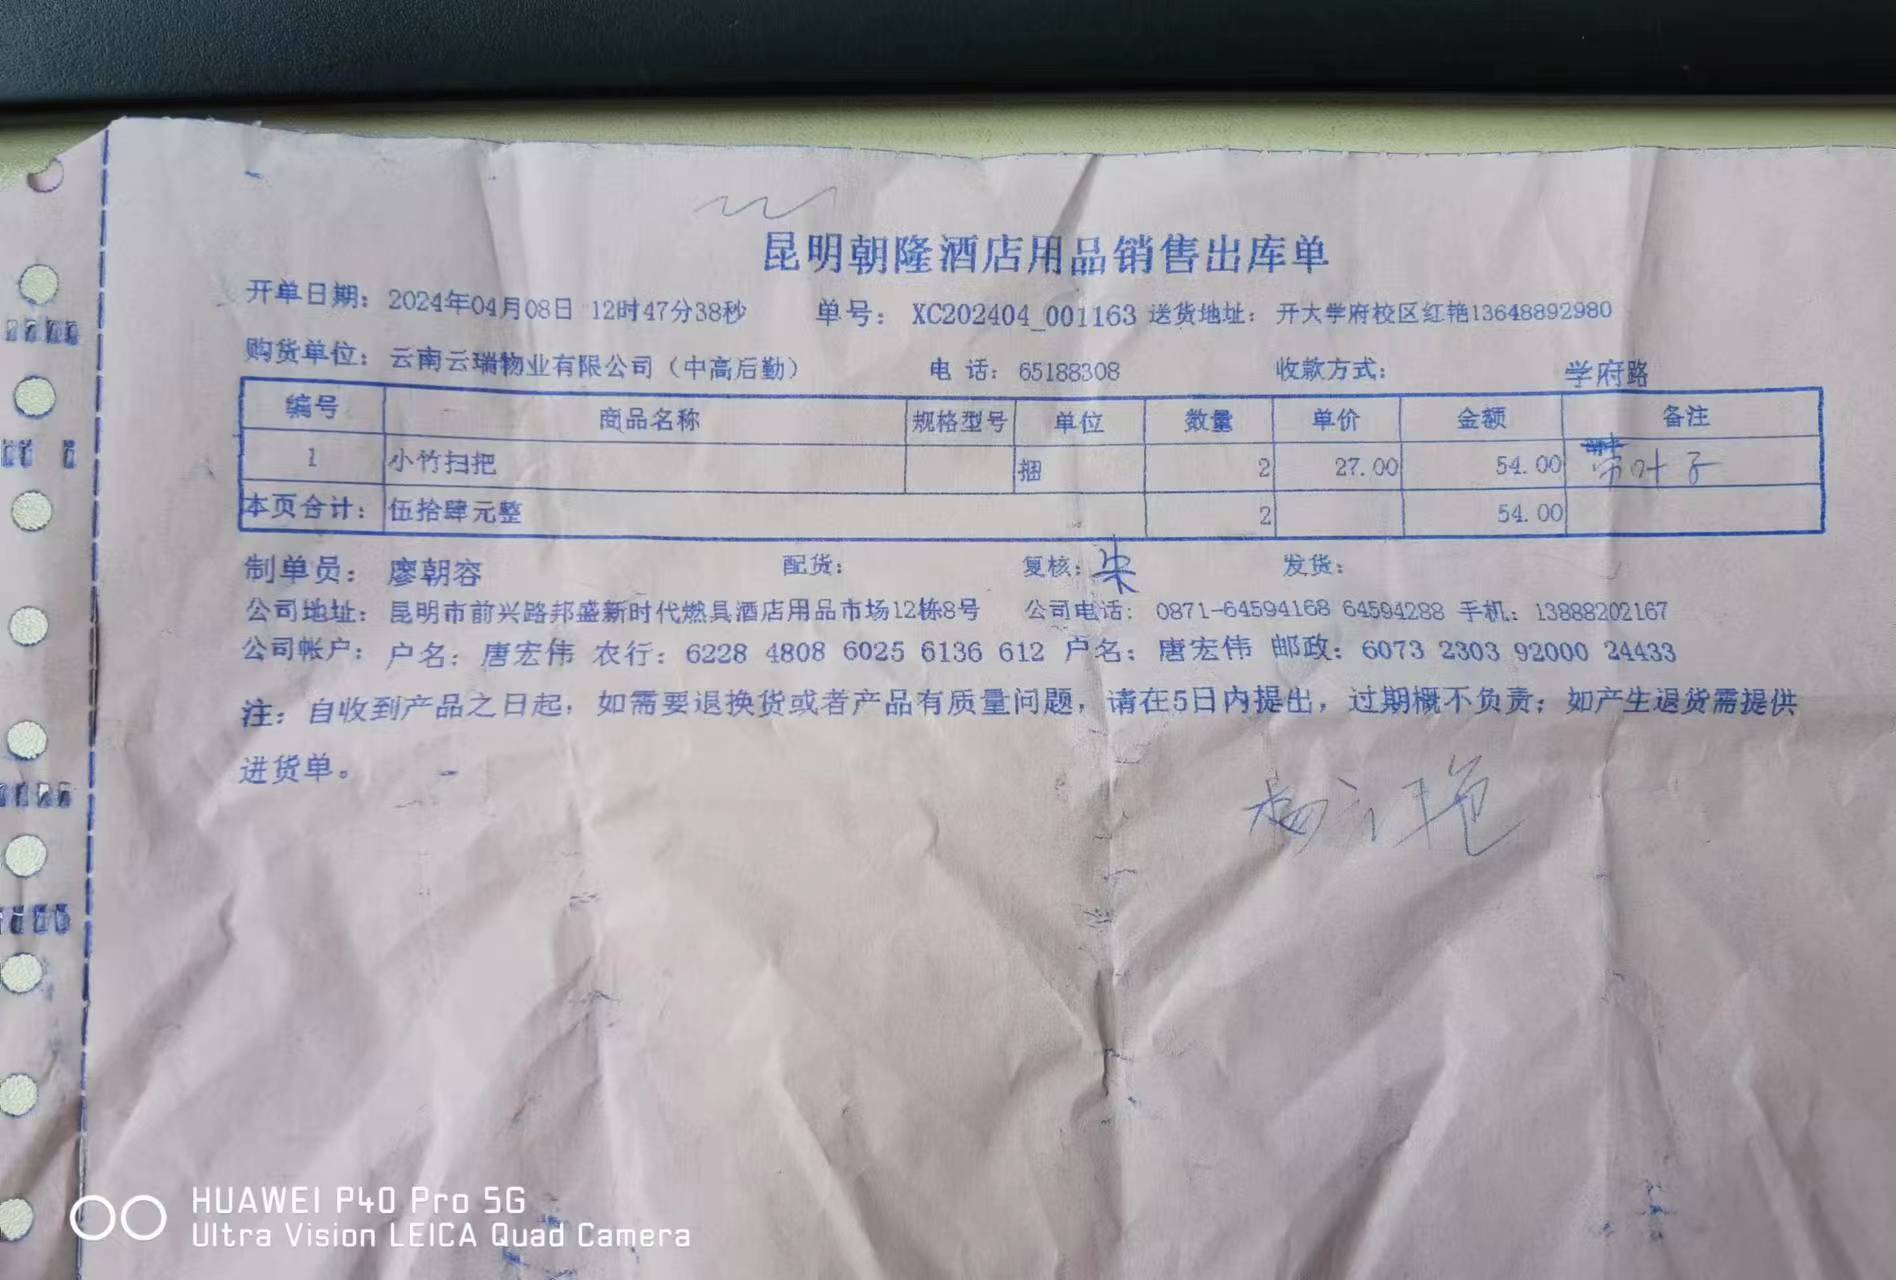 昆明朝隆酒店用品销售出库单
开单日期：2024年04月08日 12时47分38秒 单号：XC202404_001163 送货地址：开大学府校区红艳13648892980
购货单位：云南云瑞物业有限公司（中高后勤） 电 话：65188308 收款方式： 学府路
编号 商品名称 规格型号 单位 数量 单价 金额 备注
1 小竹扫把 捆 2 27.00 54.00 带叶子
本页合计：伍拾肆元整 2 54.00
制单员：廖朝容 配货： 复核： 发货：
公司地址：昆明市前兴路邦盛新时代燃具酒店用品市场12栋8号 公司电话：0871-64594168 64594288 手机：13888202167
公司帐户：户名：唐宏伟 农行：6228 4808 6025 6136 612 户名：唐宏伟 邮政：6073 2303 92000 24433
注：自收到产品之日起，如需要退换货或者产品有质量问题，请在5日内提出，过期概不负责；如产生退货需提供
进货单。
杨红艳
HUAWEI P40 Pro 5G
Ultra Vision LEICA Quad Camera